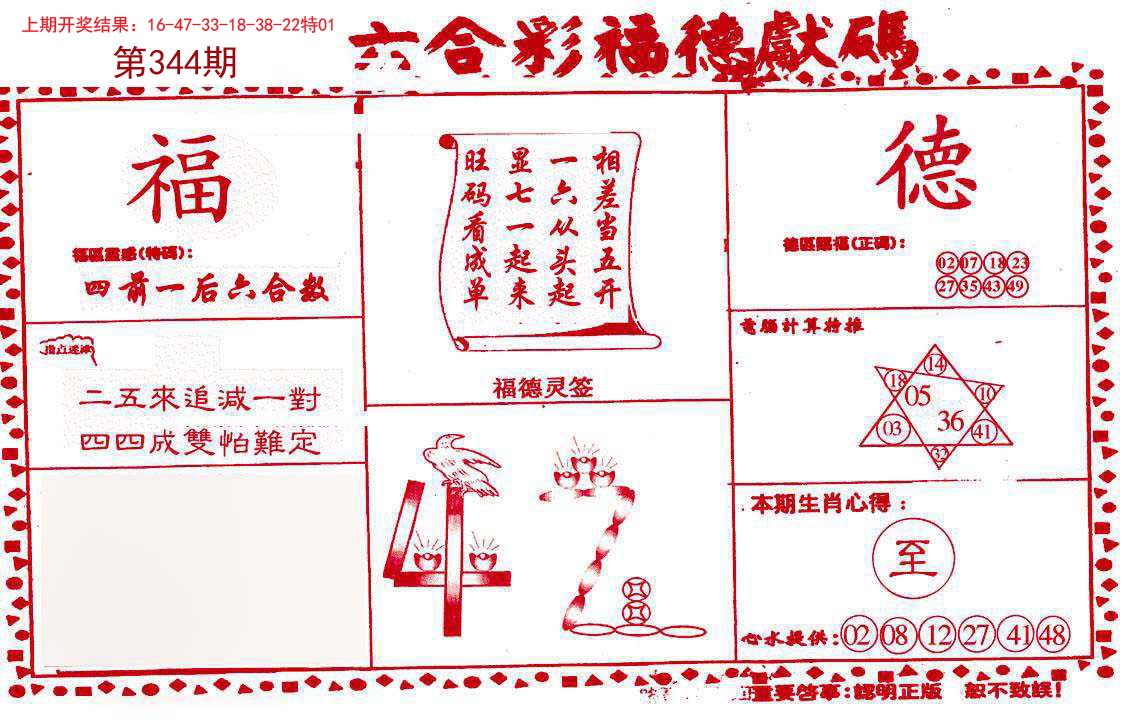 上期开奖结果：16-47-33-18-38-22特01
第344期
六合彩福德獻碼
福
福區靈感(特碼)：
四前一后六合数
指点迷津
二五來追減一對
四四成雙怕難定
相差当五开
一六从头起
显七一起来
旺码看成单
福德灵签
42
德
德區賜福(正碼)：
02 07 18 23
27 35 43 49
電腦計算特推
14
18 05 10
03 36 41
32
本期生肖心得：
至
心水提供：02 08 12 27 41 48
重要啓事：認明正版 恕不致誤！